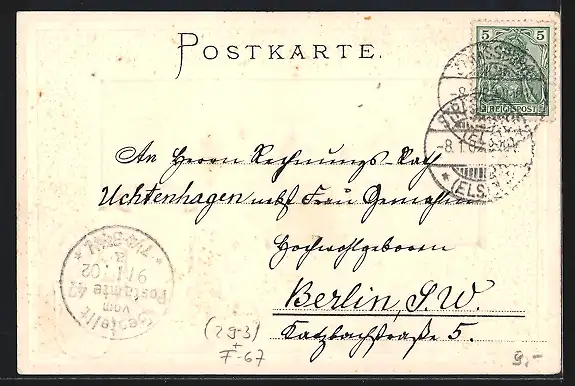 POSTKARTE.
5 5
REICHSPOST
STRASSBURG
-8.1.02
* (ELS.)
An Herrn Rechnungs-Rath
Uchtenhagen nebst Frau Gemahlin
Hochwohlgeboren
Berlin, S.W.
Katzbachstraße 5.
Bestellt
vom
Postamte 47
9/1.02
(293)
F-67
9.-